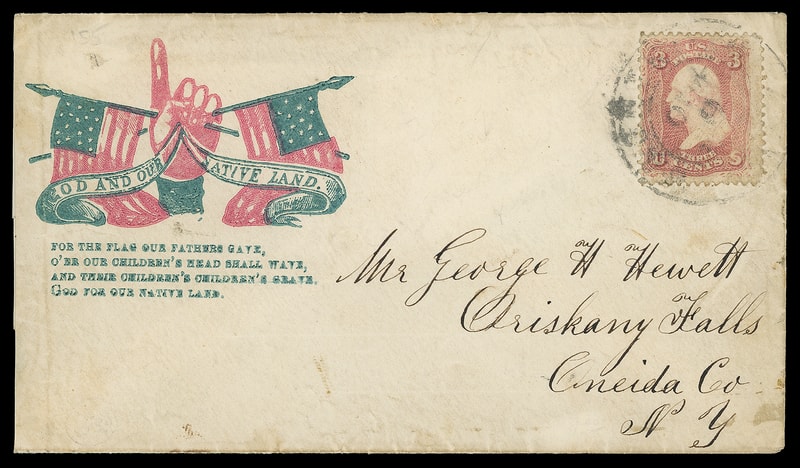 GOD AND OUR NATIVE LAND.
FOR THE FLAG OUR FATHERS GAVE,
O'ER OUR CHILDREN'S HEAD SHALL WAVE,
AND THEIR CHILDREN'S CHILDREN'S GRAVE.
GOD FOR OUR NATIVE LAND.
3 U.S. 3
POSTAGE
CENTS
Mr George H Hewett
Oriskany Falls
Oneida Co
N Y